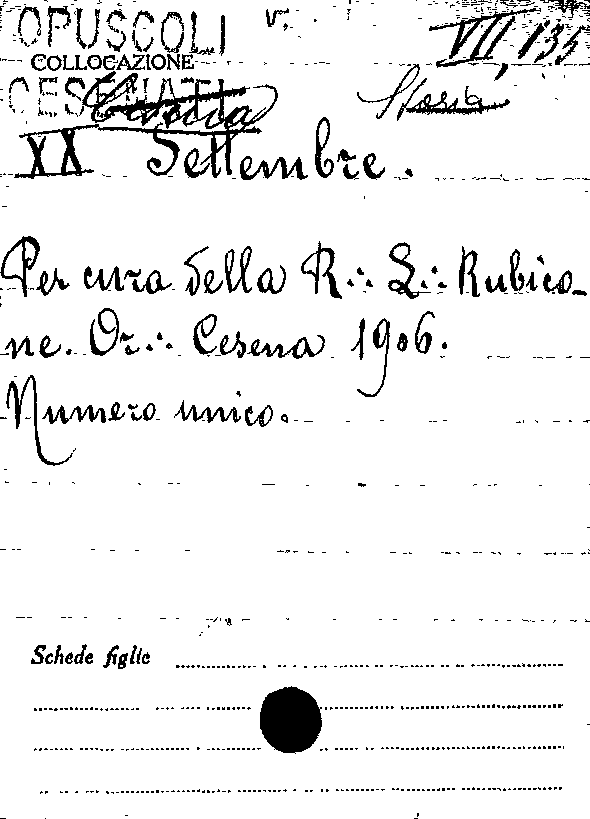 OPUSCOLI
COLLOCAZIONE
CESENATI
VII, 135
Storia
XX Settembre.
Per cura della R∴ L∴ Rubico-
ne. Or∴ Cesena 1906.
Numero unico.
Schede figlie